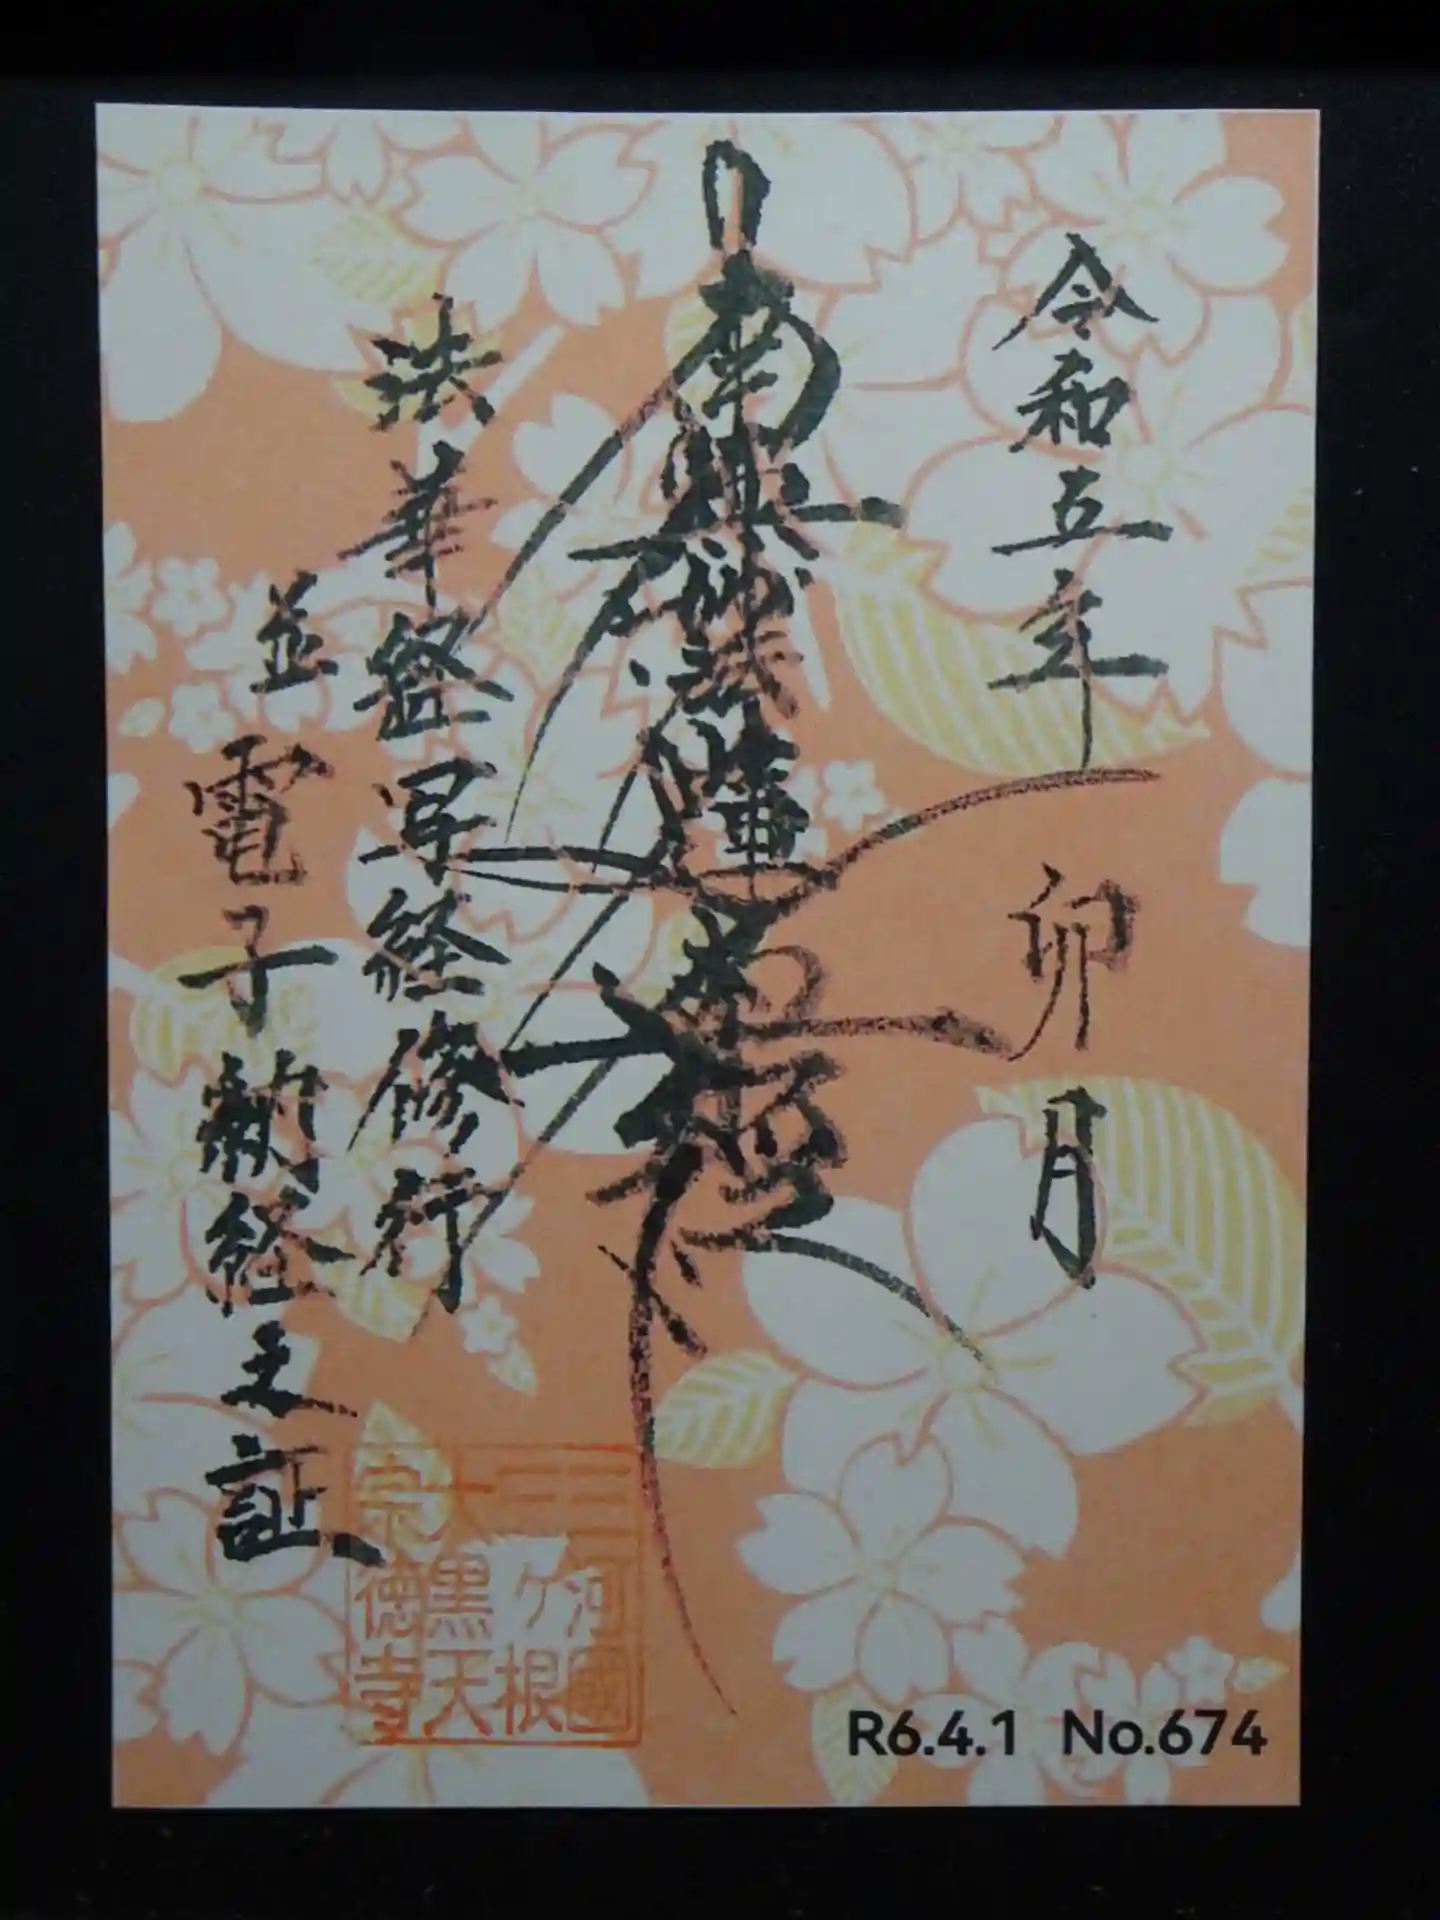 令和五年 卯月
南無妙法蓮華經
法華経写経修行
並
電子納経之証
三河國
三ヶ根
大黒天
宗徳寺
R6.4.1 No.674